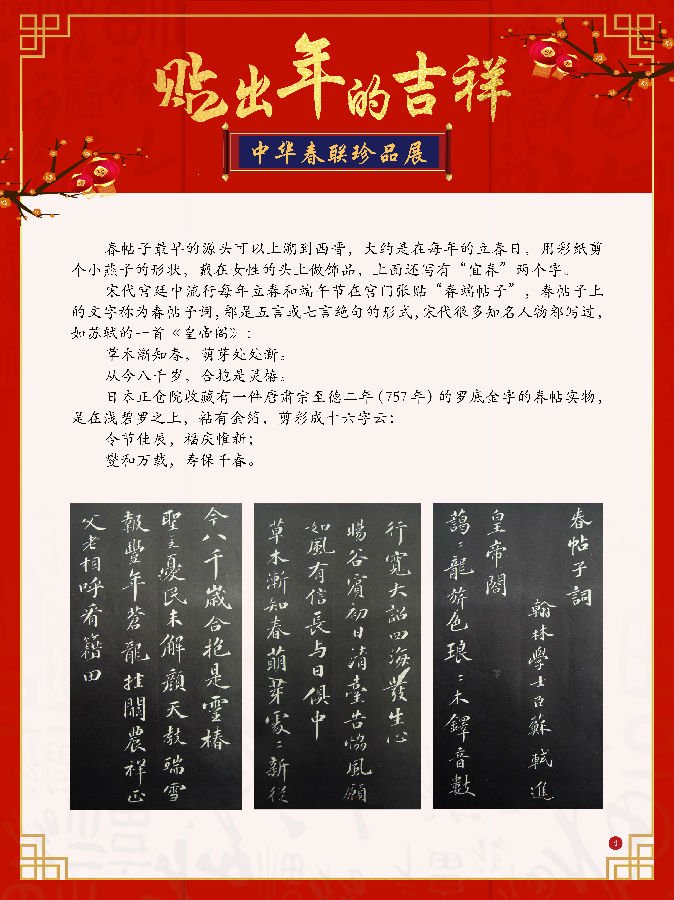 贴出年的吉祥
中华春联珍品展
春帖子最早的源头可以上溯到西晋，大约是在每年的立春日，用彩纸剪
个小燕子的形状，戴在女性的头上做饰品，上面还写有“宜春”两个字。
宋代宫廷中流行每年立春和端午节在宫门张贴“春端帖子”，春帖子上
的文字称为春帖子词，都是五言或七言绝句的形式，宋代很多知名人物都写过，
如苏轼的一首《皇帝阁》：
草木渐知春，萌芽处处新。
从今八千岁，合抱是灵椿。
日本正仓院收藏有一件唐肃宗至德二年(757年)的罗底金字的春帖实物，
是在浅碧罗之上，粘有金箔，剪彩成十六字云：
令节佳辰，福庆惟新；
燮和万载，寿保千春。
春帖子詞
翰林學士臣蘇軾進
皇帝閣
藹藹龍旂色琅琅木鐸音數
行寬大詔四海發生心
暘谷賓初日清臺告協風願
如風有信長與日俱中
草木漸知春萌芽處處新從
今八千歲合抱是靈椿
聖主憂民未解顔天教瑞雪
報豐年蒼龍挂闕農祥正
父老相呼看籍田
1